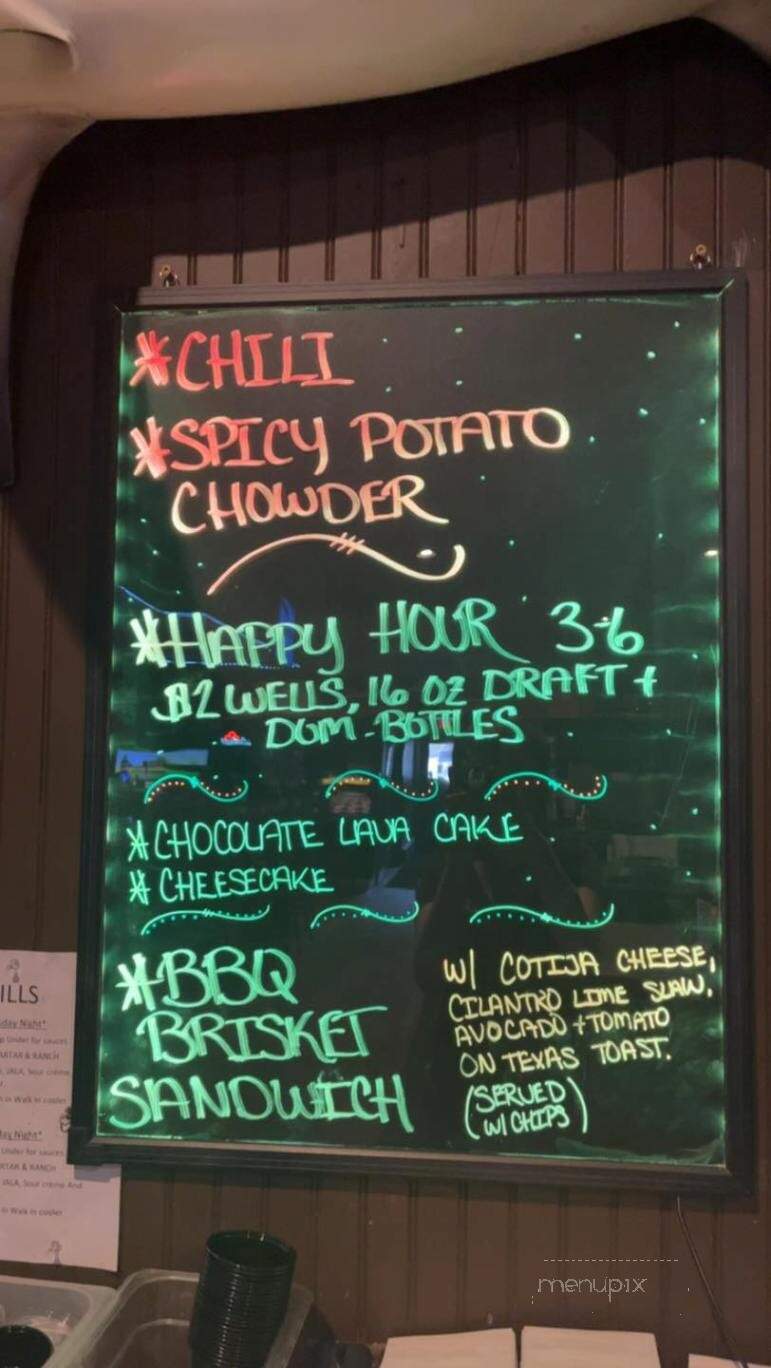 *CHILI
*SPICY POTATO
CHOWDER
*HAPPY HOUR 3-6
$2 WELLS, 16 OZ DRAFT +
DOM-BOTTLES
*CHOCOLATE LAVA CAKE
*CHEESECAKE
*BBQ
BRISKET
SANDWICH
W/ COTIJA CHEESE,
CILANTRO LIME SLAW,
AVOCADO + TOMATO
ON TEXAS TOAST.
(SERVED
W/ CHIPS)
ILLS
day Night*
Under for sauces
ARTAR & RANCH
JALA, Sour crème
in Walk in cooler
ay Night*
Under for sauces
RTAR & RANCH
JALA, Sour crème And
in Walk in cooler
menupix